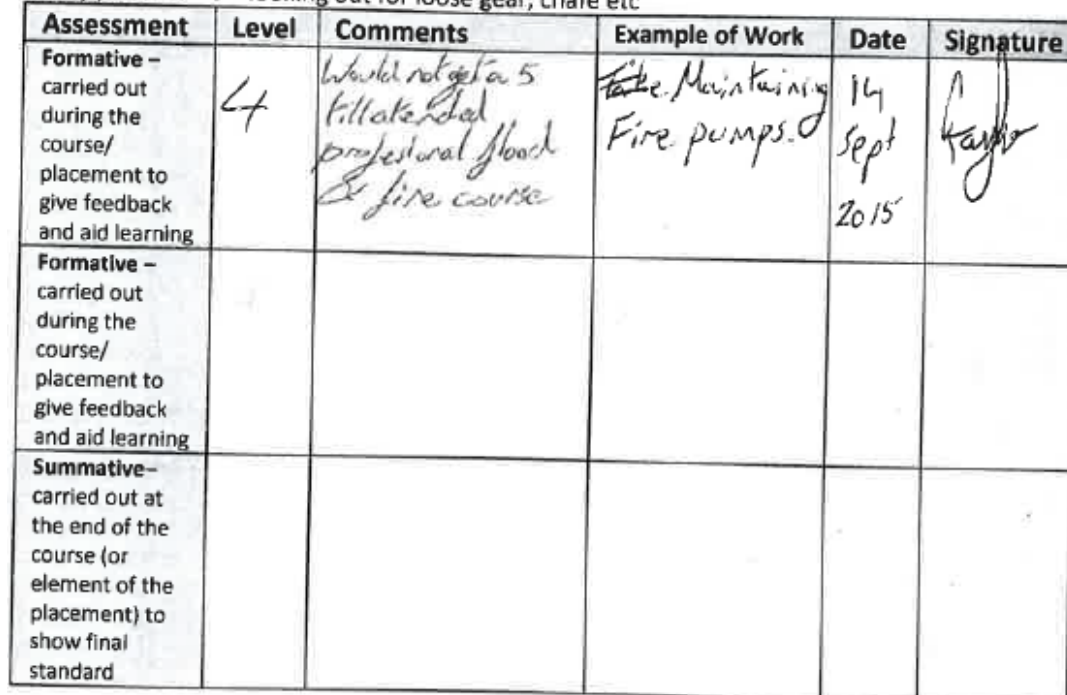 looking out for loose gear, chafe etc
Assessment Level Comments Example of Work Date Signature
Formative –
carried out
during the
course/
placement to
give feedback
and aid learning
4
Would not get a 5
till atended
profesional flood
& fire course
Maintaining
Fire pumps.
14
Sept
2015
Formative –
carried out
during the
course/
placement to
give feedback
and aid learning
Summative–
carried out at
the end of the
course (or
element of the
placement) to
show final
standard